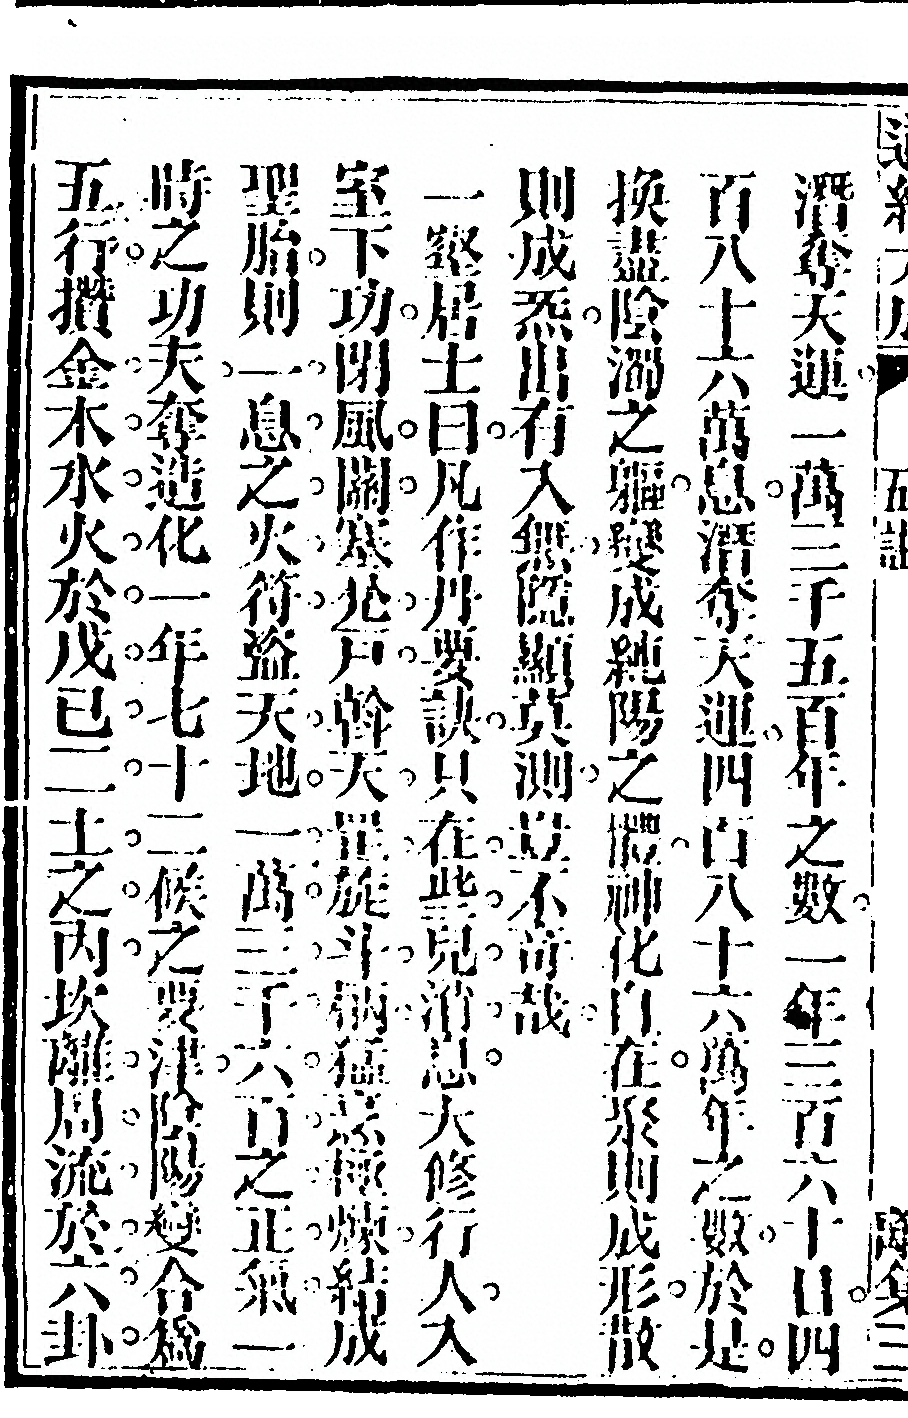 潛奪天運一萬三千五百年之數一年三百六十日四
百八十六萬息潛奪天運四百八十六萬年之數於是
換盡陰濁之軀變成純陽之體神化自在聚則成形散
則成炁出有入無隱顯莫測豈不奇哉
一壑居士曰凡作丹要訣只在些兒消息大修行人入
室下功閉風關塞艮戶斡天罡旋斗柄
結成
聖胎則一息之火符盜天地一萬三千六百之正氣一
時之功夫奪造化一年七十二候之要津陰陽變合爲
五行攢金木水火於戊己二土之內坎離周流於六卦